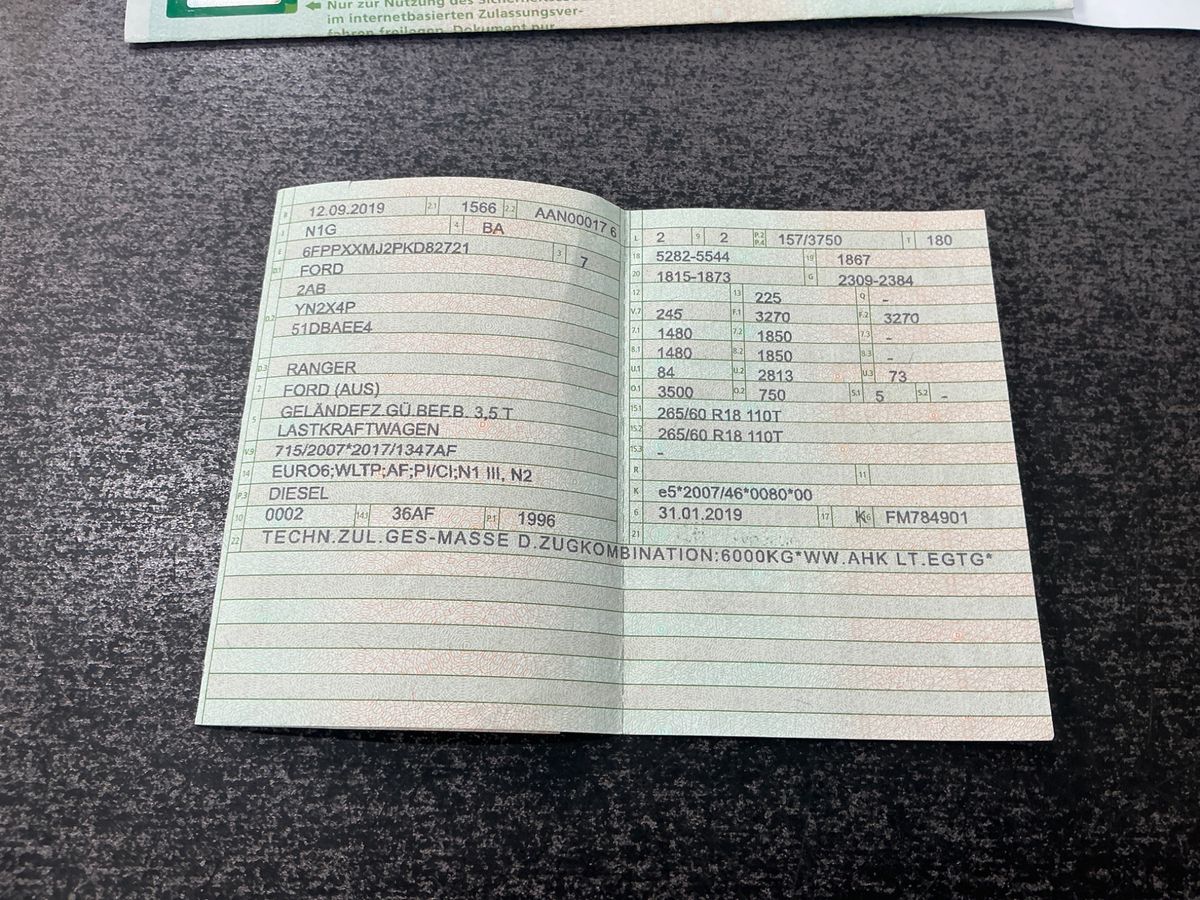 Nur zur Nutzung des
im internetbasierten Zulassungsver-
fahren freilegen. Dokument nur
B 12.09.2019 2.1 1566 2.2 AAN00017 6
J N1G 4 BA
E 6FPPXXMJ2PKD82721 3 7
D.1 FORD
2AB
D.2 YN2X4P
51DBAEE4
D.3 RANGER
2 FORD (AUS)
5 GELÄNDEFZ.GÜ.BEF.B. 3,5 T
LASTKRAFTWAGEN
V.9 715/2007*2017/1347AF
14 EURO6;WLTP;AF;PI/CI;N1 III, N2
P.3 DIESEL
10 0002 14.1 36AF P.1 1996
22 TECHN.ZUL.GES-MASSE D.ZUGKOMBINATION:6000KG*WW.AHK LT.EGTG*
L 2 9 2 P.2 P.4 157/3750 T 180
18 5282-5544 19 1867
20 1815-1873 G 2309-2384
12 13 225 Q -
V.7 245 F.1 3270 F.2 3270
7.1 1480 7.2 1850 7.3 -
8.1 1480 8.2 1850 8.3 -
U.1 84 U.2 2813 U.3 73
O.1 3500 O.2 750 S.1 5 S.2 -
15.1 265/60 R18 110T
15.2 265/60 R18 110T
15.3 -
R 11
K e5*2007/46*0080*00
6 31.01.2019 17 K 16 FM784901
21